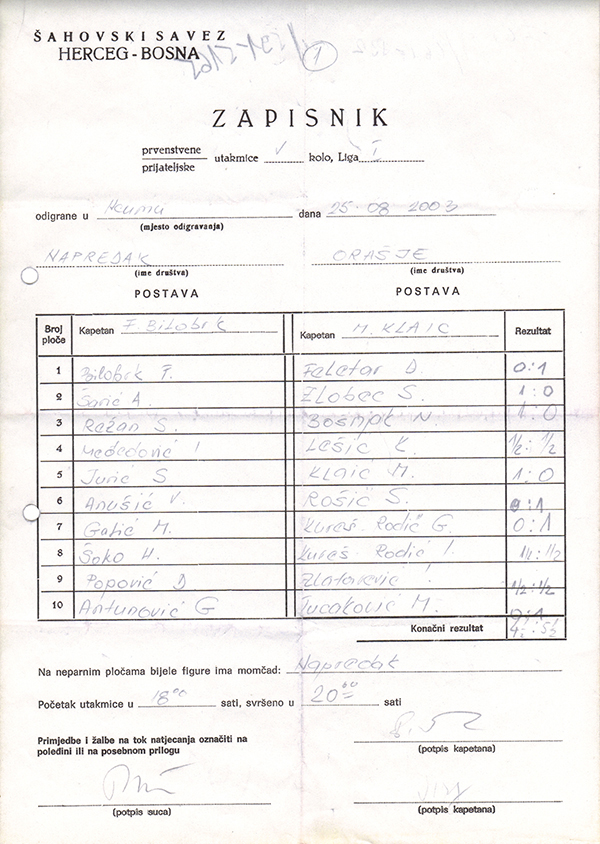 ŠAHOVSKI SAVEZ
HERCEG-BOSNA
1
ZAPISNIK
prvenstvene
prijateljske
utakmice V kolo, Liga I
odigrane u dana 25-08 2003
(mjesto odigravanja)
NAPREDAK ORAŠJE
(ime društva) (ime društva)
POSTAVA POSTAVA
Broj ploče Kapetan F. Bilobrk Kapetan M. KLAIC Rezultat
1 Bilobrk F. Feletar D. 0:1
2 Sarić A. Zlobec S. 1:0
3 Režan S. Bošnjak N. 1:0
4 Međedović I Lešić K. 1/2:1/2
5 Jurić S Klaic M. 1:0
6 Anušić V. Rošić S. 0:1
7 Galić M. Kureš-Rodić G. 0:1
8 Šoko H. Kureš-Rodić I. 1/2:1/2
9 Popović D Zlatarević 1/2:1/2
10 Antunović G Tucaković M. 0:1
Konačni rezultat 5½
Na neparnim pločama bijele figure ima momčad: Napredak
Početak utakmice u 18⁰⁰ sati, svršeno u 20 sati
Primjedbe i žalbe na tok natjecanja označiti na
poleđini ili na posebnom prilogu
(potpis kapetana)
(potpis suca) (potpis kapetana)